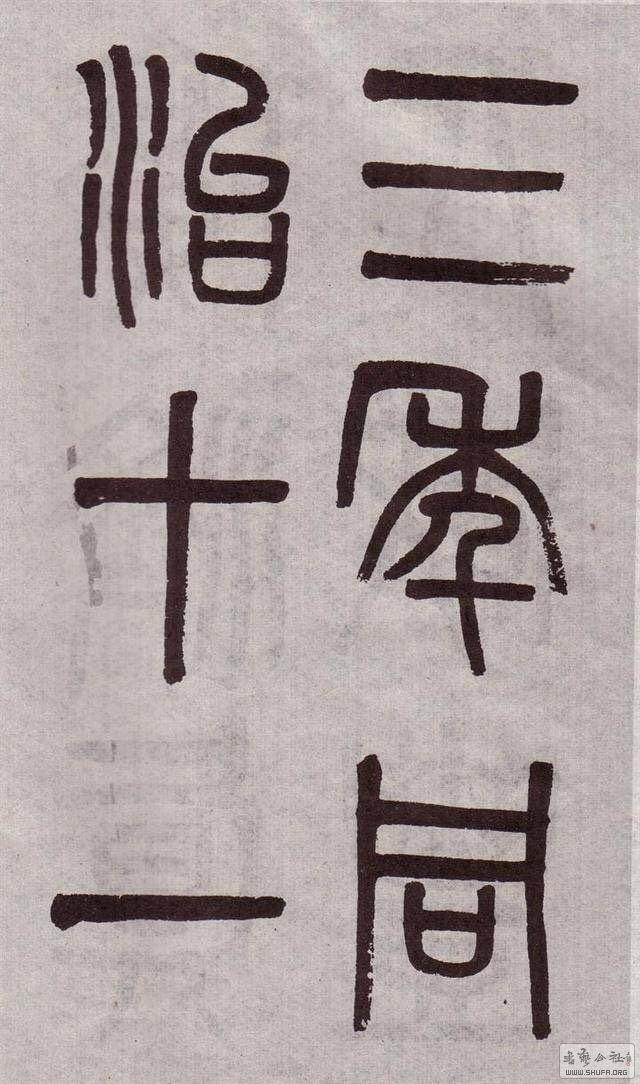 三年同
治十一
书艺公社
WWW.SHUFA.ORG